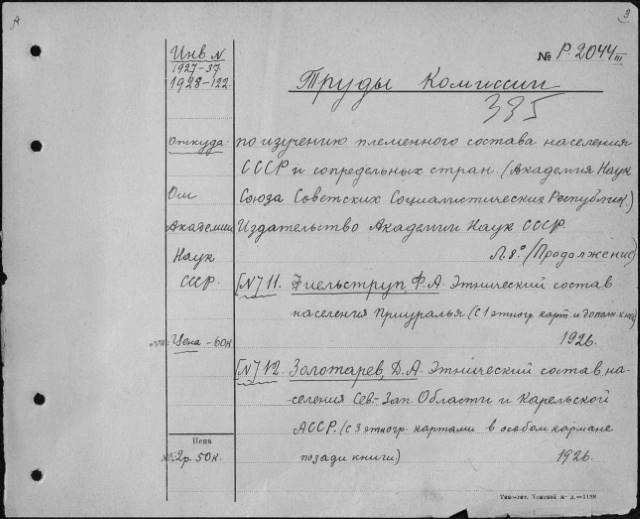 А 3
Инв. N
1927-37
1928-122.
№ Р. 2044 III
Труды Комиссии
335
Откуда
по изучению племенного состава населения
СССР и сопредельных стран. (Академия Наук
От
Союза Советских Социалистических Республик)
Академии
Издательство Академии Наук СССР.
Наук
Л. 8° (Продолжение)
СССР.
[N] 11. Фиельструп, Ф.А. Этнический состав
населения Приуралья (с 1 этногр. карт. и дополн. к ней)
Цена - 60к
1926.
[N] 12. Золотарев, Д.А. Этнический состав на-
селения Сев.-Зап. Области и Карельской
АССР. (с 3 этногр. картами в особом кармане
позади книги) 1926.
Цена
2р. 50к.
Типо-лит. Томской ж-д.—1198